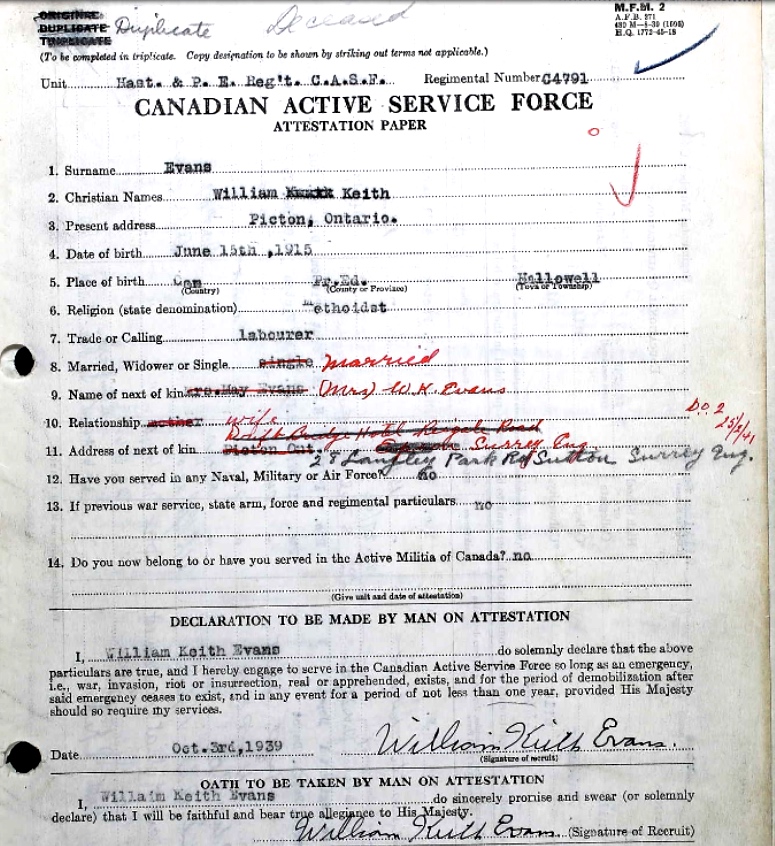 ORIGINAL
DUPLICATE Duplicate Deceased
TRIPLICATE
M.F.M. 2
A.F.B. 271
H.Q. 1772-45-18
(To be completed in triplicate. Copy designation to be shown by striking out terms not applicable.)
Unit Hast. & P. E. Reg't. C.A.S.F. Regimental Number C4791
CANADIAN ACTIVE SERVICE FORCE
ATTESTATION PAPER
1. Surname Evans
2. Christian Names William Keith
3. Present address Picton, Ontario.
4. Date of birth June 15th ,1915
5. Place of birth Can Pr.Ed. Hallowell
(Country) (County or Province) (Town or Township)
6. Religion (state denomination) Methoidst
7. Trade or Calling labourer
8. Married, Widower or Single single married
9. Name of next of kin Mrs.May Evans (Mrs) W.K. Evans
10. Relationship mother wife D.O. 2
Bridge Hotel Road 25/2/41
11. Address of next of kin Picton Ont. Surrey Eng.
28 Langley Park Rd Sutton Surrey Eng.
12. Have you served in any Naval, Military or Air Force? no
13. If previous war service, state arm, force and regimental particulars no
14. Do you now belong to or have you served in the Active Militia of Canada? no
(Give unit and date of attestation)
DECLARATION TO BE MADE BY MAN ON ATTESTATION
I, William Keith Evans do solemnly declare that the above
particulars are true, and I hereby engage to serve in the Canadian Active Service Force so long as an emergency,
i.e., war, invasion, riot or insurrection, real or apprehended, exists, and for the period of demobilization after
said emergency ceases to exist, and in any event for a period of not less than one year, provided His Majesty
should so require my services.
Date Oct.3rd,1939 William Keith Evans.
(Signature of recruit)
OATH TO BE TAKEN BY MAN ON ATTESTATION
I, Willaim Keith Evans do sincerely promise and swear (or solemnly
declare) that I will be faithful and bear true allegiance to His Majesty.
William Keith Evans (Signature of Recruit)